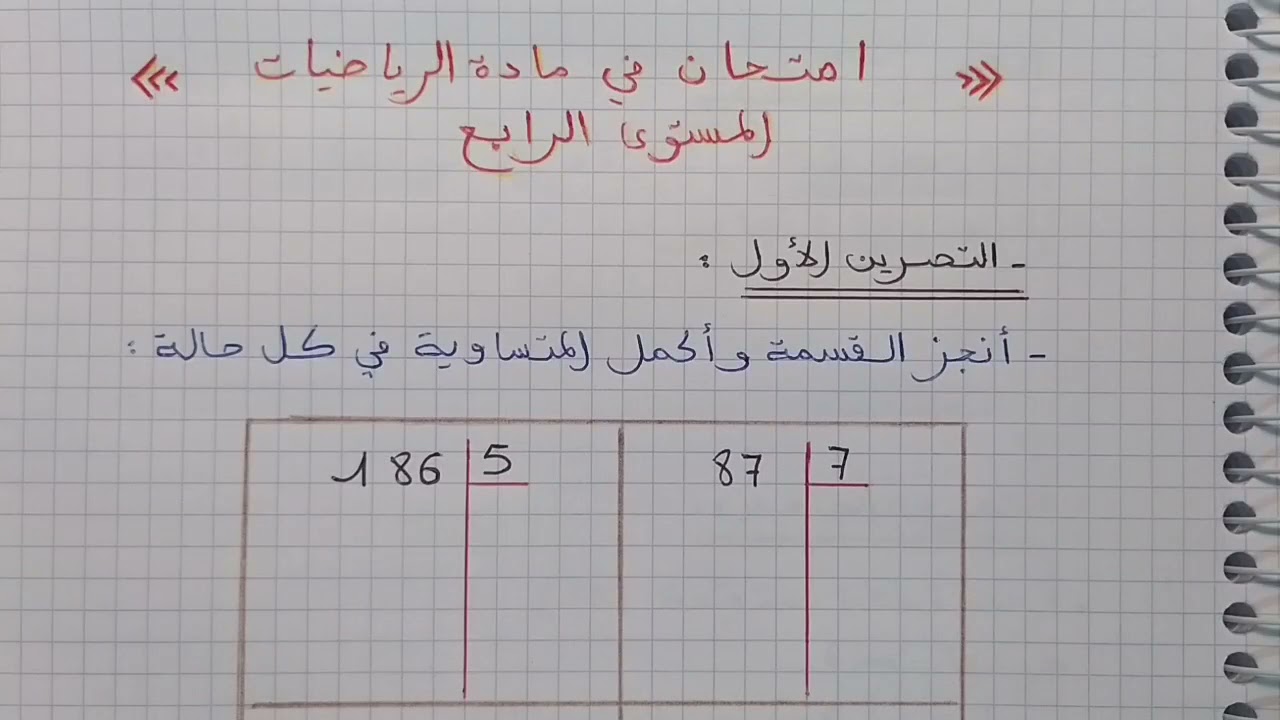 ««« امتحان في مادة الرياضيات »»»
المستوى الرابع
- التمرين الأول :
- أنجز القسمة وأكمل المتساوية في كل حالة :
186 5
87 7